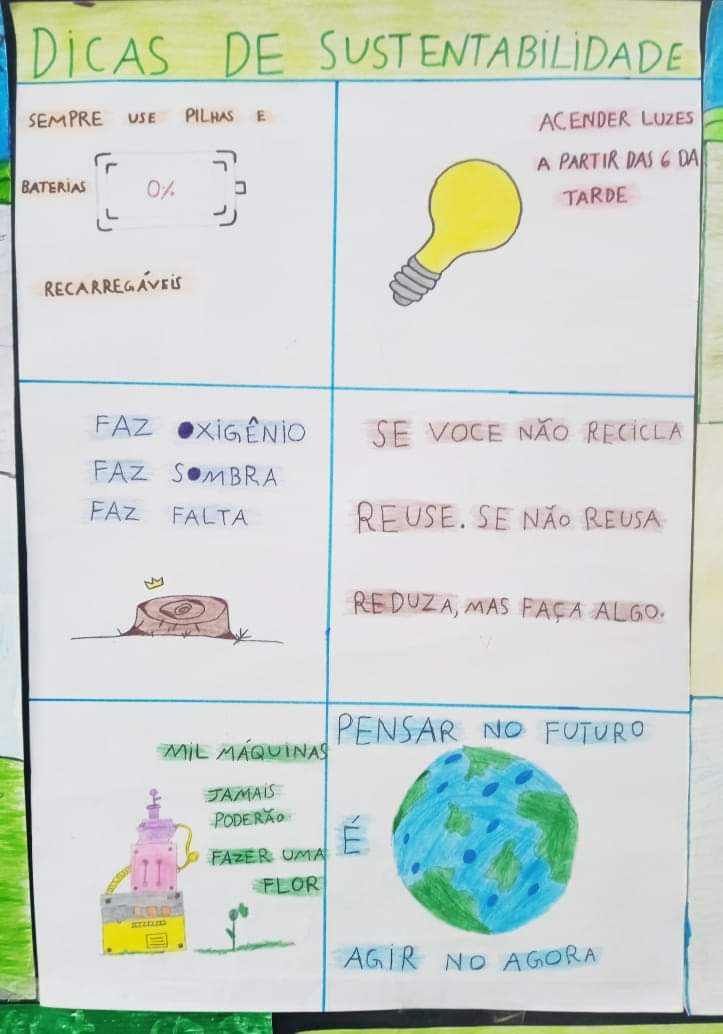 DiCAS DE SUSTENTABiLiDADE
SEMPRE USE PILHAS E
BATERIAS 0%
RECARREGÁVEIS
ACENDER LUZES
A PARTIR DAS 6 DA
TARDE
FAZ OXIGÊNIO
FAZ SOMBRA
FAZ FALTA
SE VOCE NÃO RECICLA
REUSE. SE NÃO REUSA
REDUZA, MAS FAÇA ALGO.
MIL MÁQUINAS
JAMAIS
PODERÃO
FAZER UMA
FLOR
PENSAR NO FUTURO
É
AGIR NO AGORA